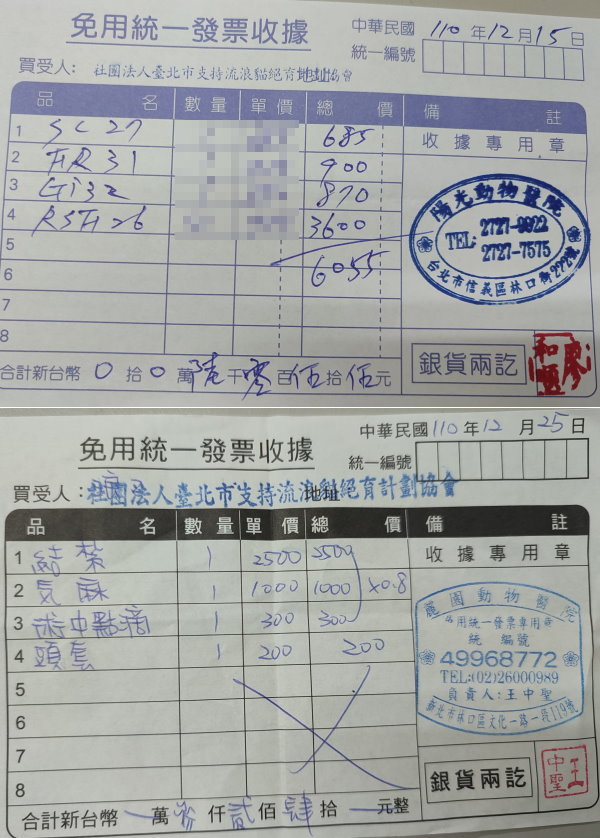 免用統一發票收據
中華民國 110 年 12 月 15 日
統一編號
買受人: 社團法人臺北市支持流浪貓絕育 協會
品名 數量 單價 總價 備註
收據專用章
1 SC27 685
2 FR31 900
3 Gi32 870
4 RSFi26 3600
5
6 6055
7
8
陽光動物醫院
TEL: 2727-9922
2727-7575
台北市信義區林口街222號
銀貨兩訖
合計新台幣 0 拾 0 萬 陸 千 零 百 伍 拾 伍 元
免用統一發票收據
中華民國 110 年 12 月 25 日
統一編號
買受人: 社團法人臺北市支持流浪貓絕育計劃協會
地址
品名 數量 單價 總價 備註
收據專用章
1 結紮 1 2500 2500
2 気麻 1 1000 1000 ×0.8
3 術中點滴 1 300 300
4 頭套 1 200 200
5
6
7
8
麗園動物醫院
免用統一發票專用章
統一編號
49968772
TEL:(02)26000989
負責人:王中聖
新北市林口區文化一路一段119號
銀貨兩訖
王中聖
合計新台幣 萬 參 仟 貳 佰 肆 拾 元整